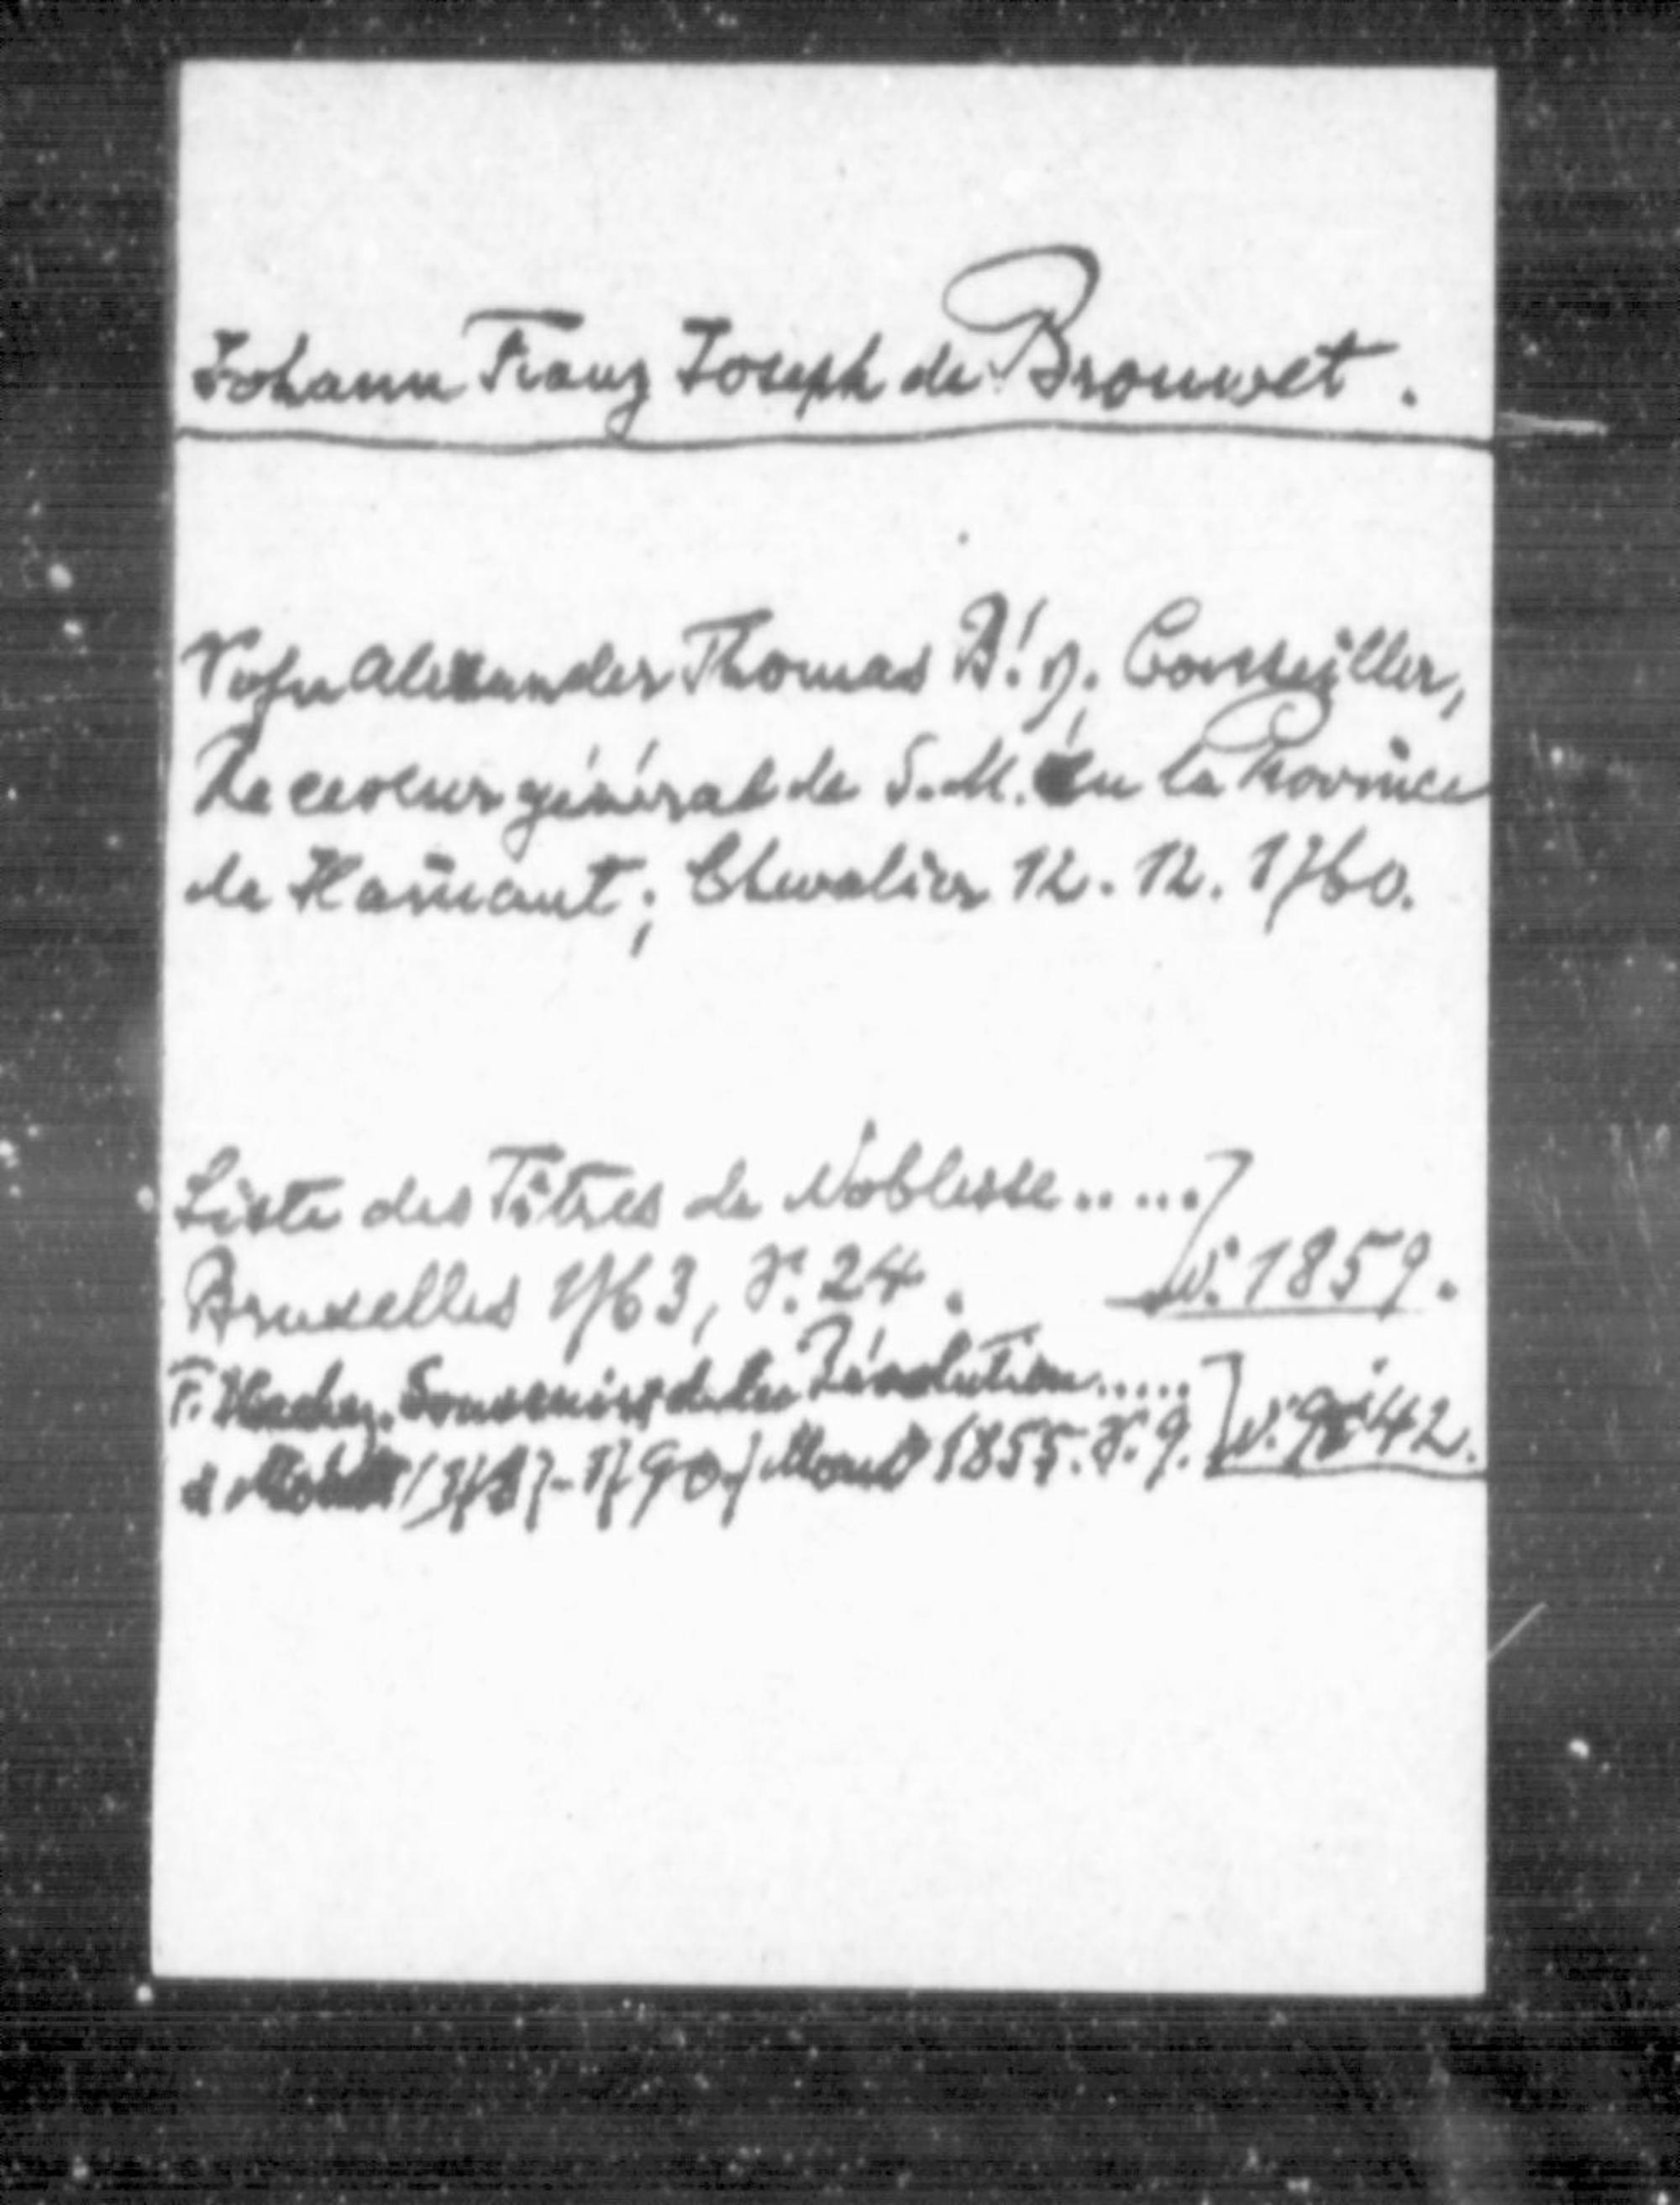 Johann Franz Joseph de Brouwet.
Sohn Alexander Thomas B's. Conseiller,
Receveur général de S. M. en la Province
de Hainaut; Chevalier 12. 12. 1760.
Liste des Titres de Noblesse.....]
Bruxelles 1763, S. 24. W. 1859.
F. Hachez. Souvenirs de la Révolution.....]
à Mons (1787-1790) Mons 1855. S. 9. W. 42.